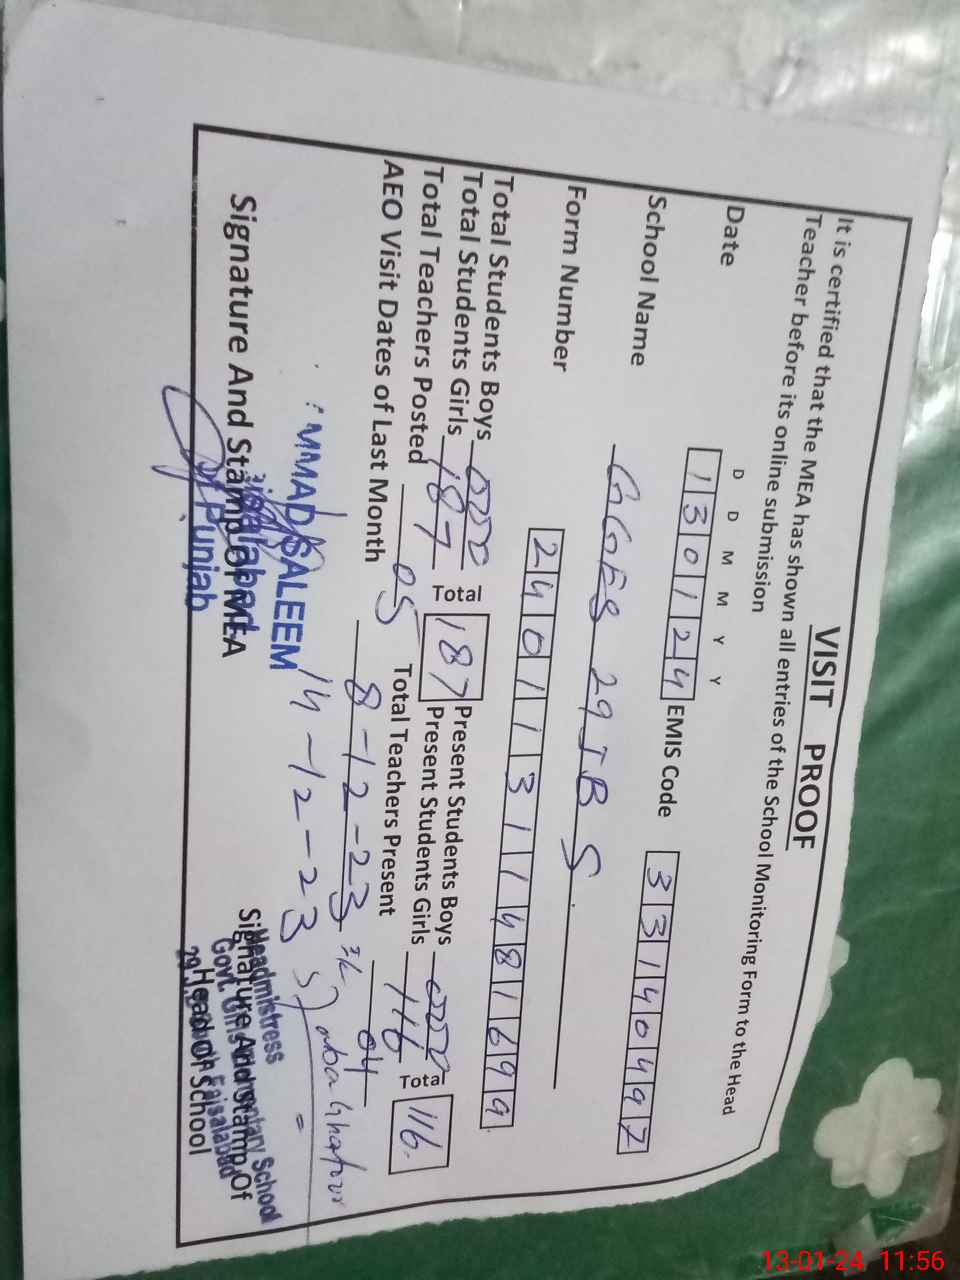 VISIT PROOF
It is certified that the MEA has shown all entries of the School Monitoring Form to the Head
Teacher before its online submission
D D M M Y Y
Date 130124 EMIS Code 33140497
School Name GGES 29JB S.
Form Number 2401131148 1699
Total Students Boys 000 Total 187 Present Students Boys 000 Total 116
Total Students Girls 187 Present Students Girls 116
Total Teachers Posted 05 Total Teachers Present 04
AEO Visit Dates of Last Month 8-12-23
14-12-23
MMAD SALEEM
Punjab
Signature And Stamp Of MEA
Headmistress
Signature And Stamp Of
Head Of School
13-01-24 11:56